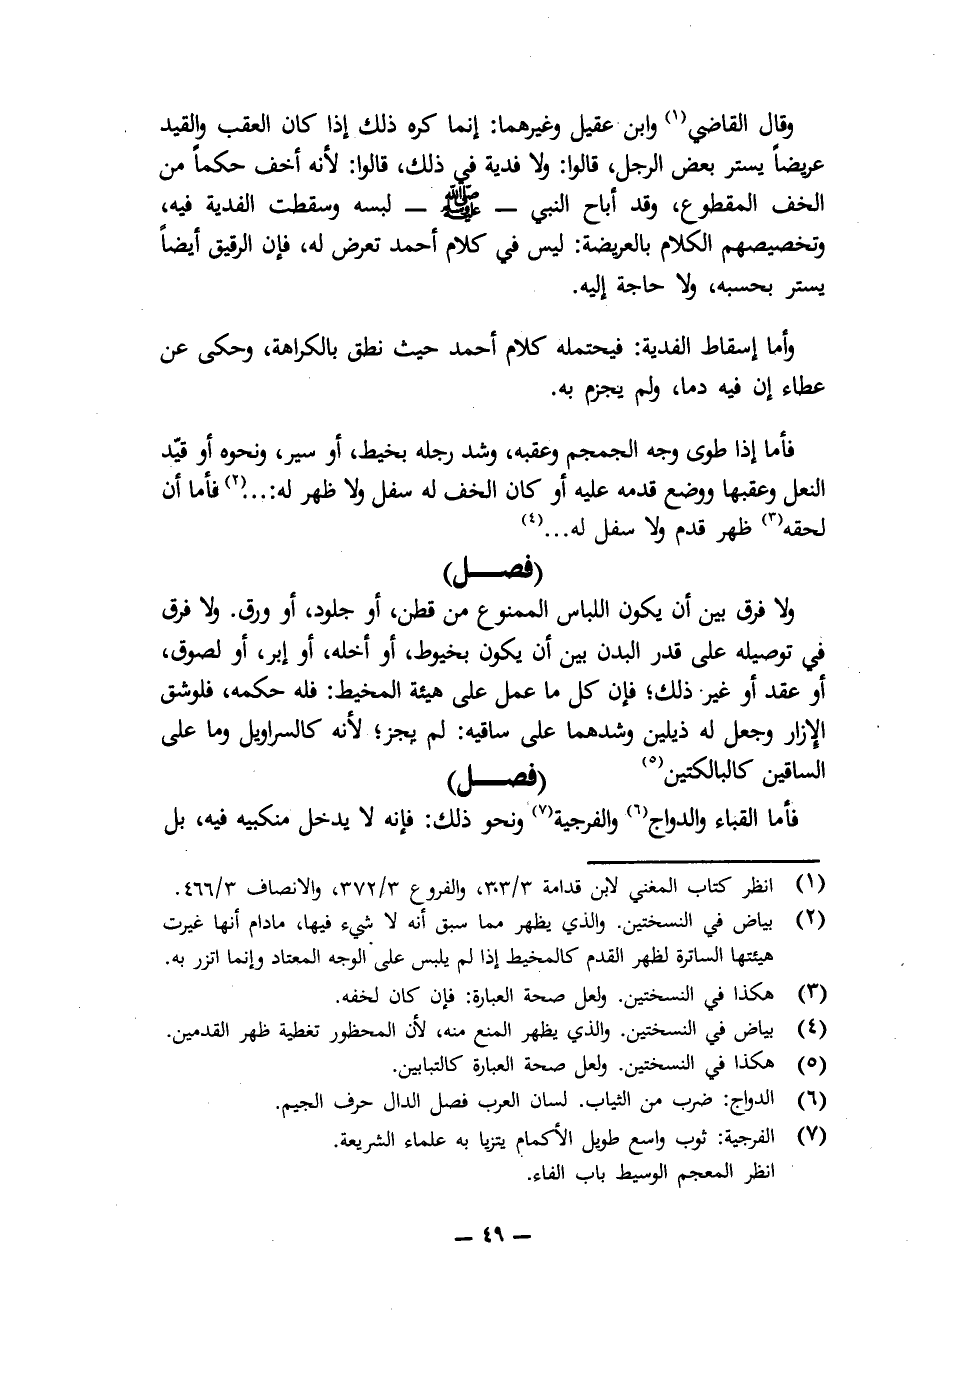 وقال القاضي(١) وابن عقيل وغيرهما: إنما كره ذلك إذا كان العقب والقيد
عريضاً يستر بعض الرجل، قالوا: ولا فدية في ذلك، قالوا: لأنه أخف حكماً من
الخف المقطوع، وقد أباح النبي — ﷺ — لبسه وسقطت الفدية فيه،
وتخصيصهم الكلام بالعريضة: ليس في كلام أحمد تعرض له، فإن الرقيق أيضاً
يستر بحسبه، ولا حاجة إليه.
وأما إسقاط الفدية: فيحتمله كلام أحمد حيث نطق بالكراهة، وحكى عن
عطاء إن فيه دما، ولم يجزم به.
فأما إذا طوى وجه الجمجم وعقبه، وشد رجله بخيط، أو سير، ونحوه أو قيّد
النعل وعقبها ووضع قدمه عليه أو كان الخف له سفل ولا ظهر له:...(٢) فأما أن
لحقه(٣) ظهر قدم ولا سفل له...(٤)
(فصــــل)
ولا فرق بين أن يكون اللباس الممنوع من قطن، أو جلود، أو ورق. ولا فرق
في توصيله على قدر البدن بين أن يكون بخيوط، أو أخله، أو إبر، أو لصوق،
أو عقد أو غير ذلك؛ فإن كل ما عمل على هيئة المخيط: فله حكمه، فلوشق
الإزار وجعل له ذيلين وشدهما على ساقيه: لم يجز؛ لأنه كالسراويل وما على
الساقين كالبالكتين(٥)
(فصــــل)
فأما القباء والدواج(٦) والفرجية(٧) ونحو ذلك: فإنه لا يدخل منكبيه فيه، بل
(١) انظر كتاب المغني لابن قدامة ٣٠٣/٣، والفروع ٣٧٢/٣، والانصاف ٤٦٦/٣.
(٢) بياض في النسختين. والذي يظهر مما سبق أنه لا شيء فيها، مادام أنها غيرت
هيئتها الساترة لظهر القدم كالمخيط إذا لم يلبس على الوجه المعتاد وإنما اتزر به.
(٣) هكذا في النسختين. ولعل صحة العبارة: فإن كان لخفه.
(٤) بياض في النسختين. والذي يظهر المنع منه، لأن المحظور تغطية ظهر القدمين.
(٥) هكذا في النسختين. ولعل صحة العبارة كالتبابين.
(٦) الدواج: ضرب من الثياب. لسان العرب فصل الدال حرف الجيم.
(٧) الفرجية: ثوب واسع طويل الأكمام يتزيا به علماء الشريعة.
انظر المعجم الوسيط باب الفاء.
— ٤٩ —